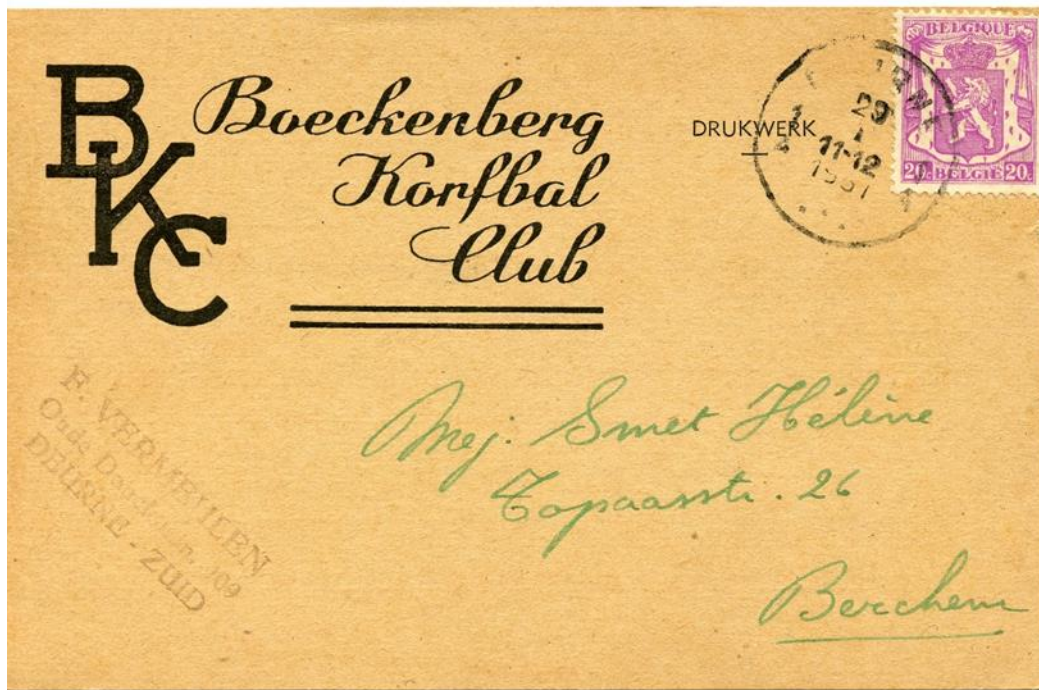 BKC
Boeckenberg
Korfbal
Club
DRUKWERK
29
11-12
BELGIQUE
20c BELGIË 20c
F. VERMEULEN
Oude
DEURNE - ZUID
Mej. Smet Hélène
Topaasstr. 26
Berchem